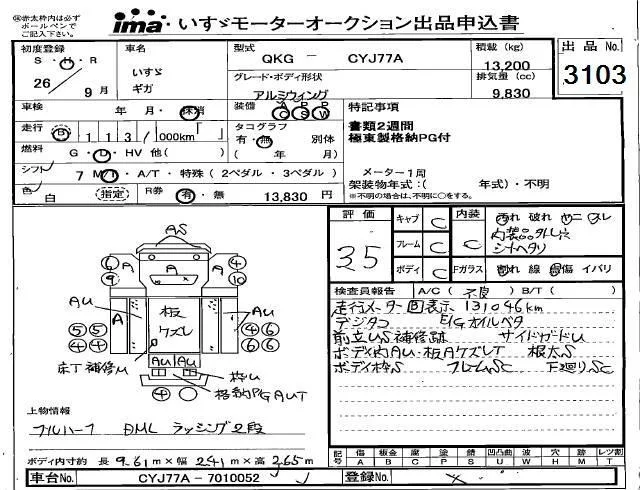 ※赤太枠内は必ず
ボールペンで
ご記入下さい。
ima いすゞモーターオークション出品申込書
初度登録 S・H・R 26年 9月
車名 いすゞ ギガ
型式 QKG - CYJ77A
グレード・ボディ形状 アルミウイング
積載 (kg) 13,200
排気量 (cc) 9,830
出品 No. 3103
車検 年 月・抹消
走行 B 113 ,000km
燃料 G・D・HV 他( )
シフト 7 MT・A/T・特殊 (2ペダル・3ペダル)
色 白 (指定) R券 有・無 13,830 円
装備 A P P C S W
タコグラフ 有・無 別体 ( 年 月)
特記事項
書類2週間
極東製格納PG付
メーター1周
架装物年式:( 年式)・不明
※不明の場合は、不明に〇をする。
評価 35
キャブ C
フレーム C
ボディ C
内装 C
汚れ 破れ ヤニ スレ
内装品外し穴
シートヘタリ
Fガラス 割れ 線 飛傷 イバリ
検査員報告 A/C ( 不良 ) B/T ( )
走行メーター回表示 131046km
デジタコ E/Gオイルベタ
前立US補修跡 サイドガードU
ボディ内AU・板AケズレT 根太S
ボディ枠S フレームSC 下廻りSC
AS
A A A
④ ⑨ ④ ⑩
AU AU
A
板
ケズレ
⑤⑤ ④⑥
④④ ⑥⑥
床T補修U
AU AU
枠U
格納PG AUT
④
上物情報
フルハーフ AML ラッシング2段
ボディ内寸約 長 9.61m×幅 2.41m×高 2.65m
記号 傷 A 板金 B 腐食 C 塗 P 錆 S 凹凸曲 U ボ W 穴 H 折 T レツ割 X
車台No. CYJ77A - 7010052
登録No.